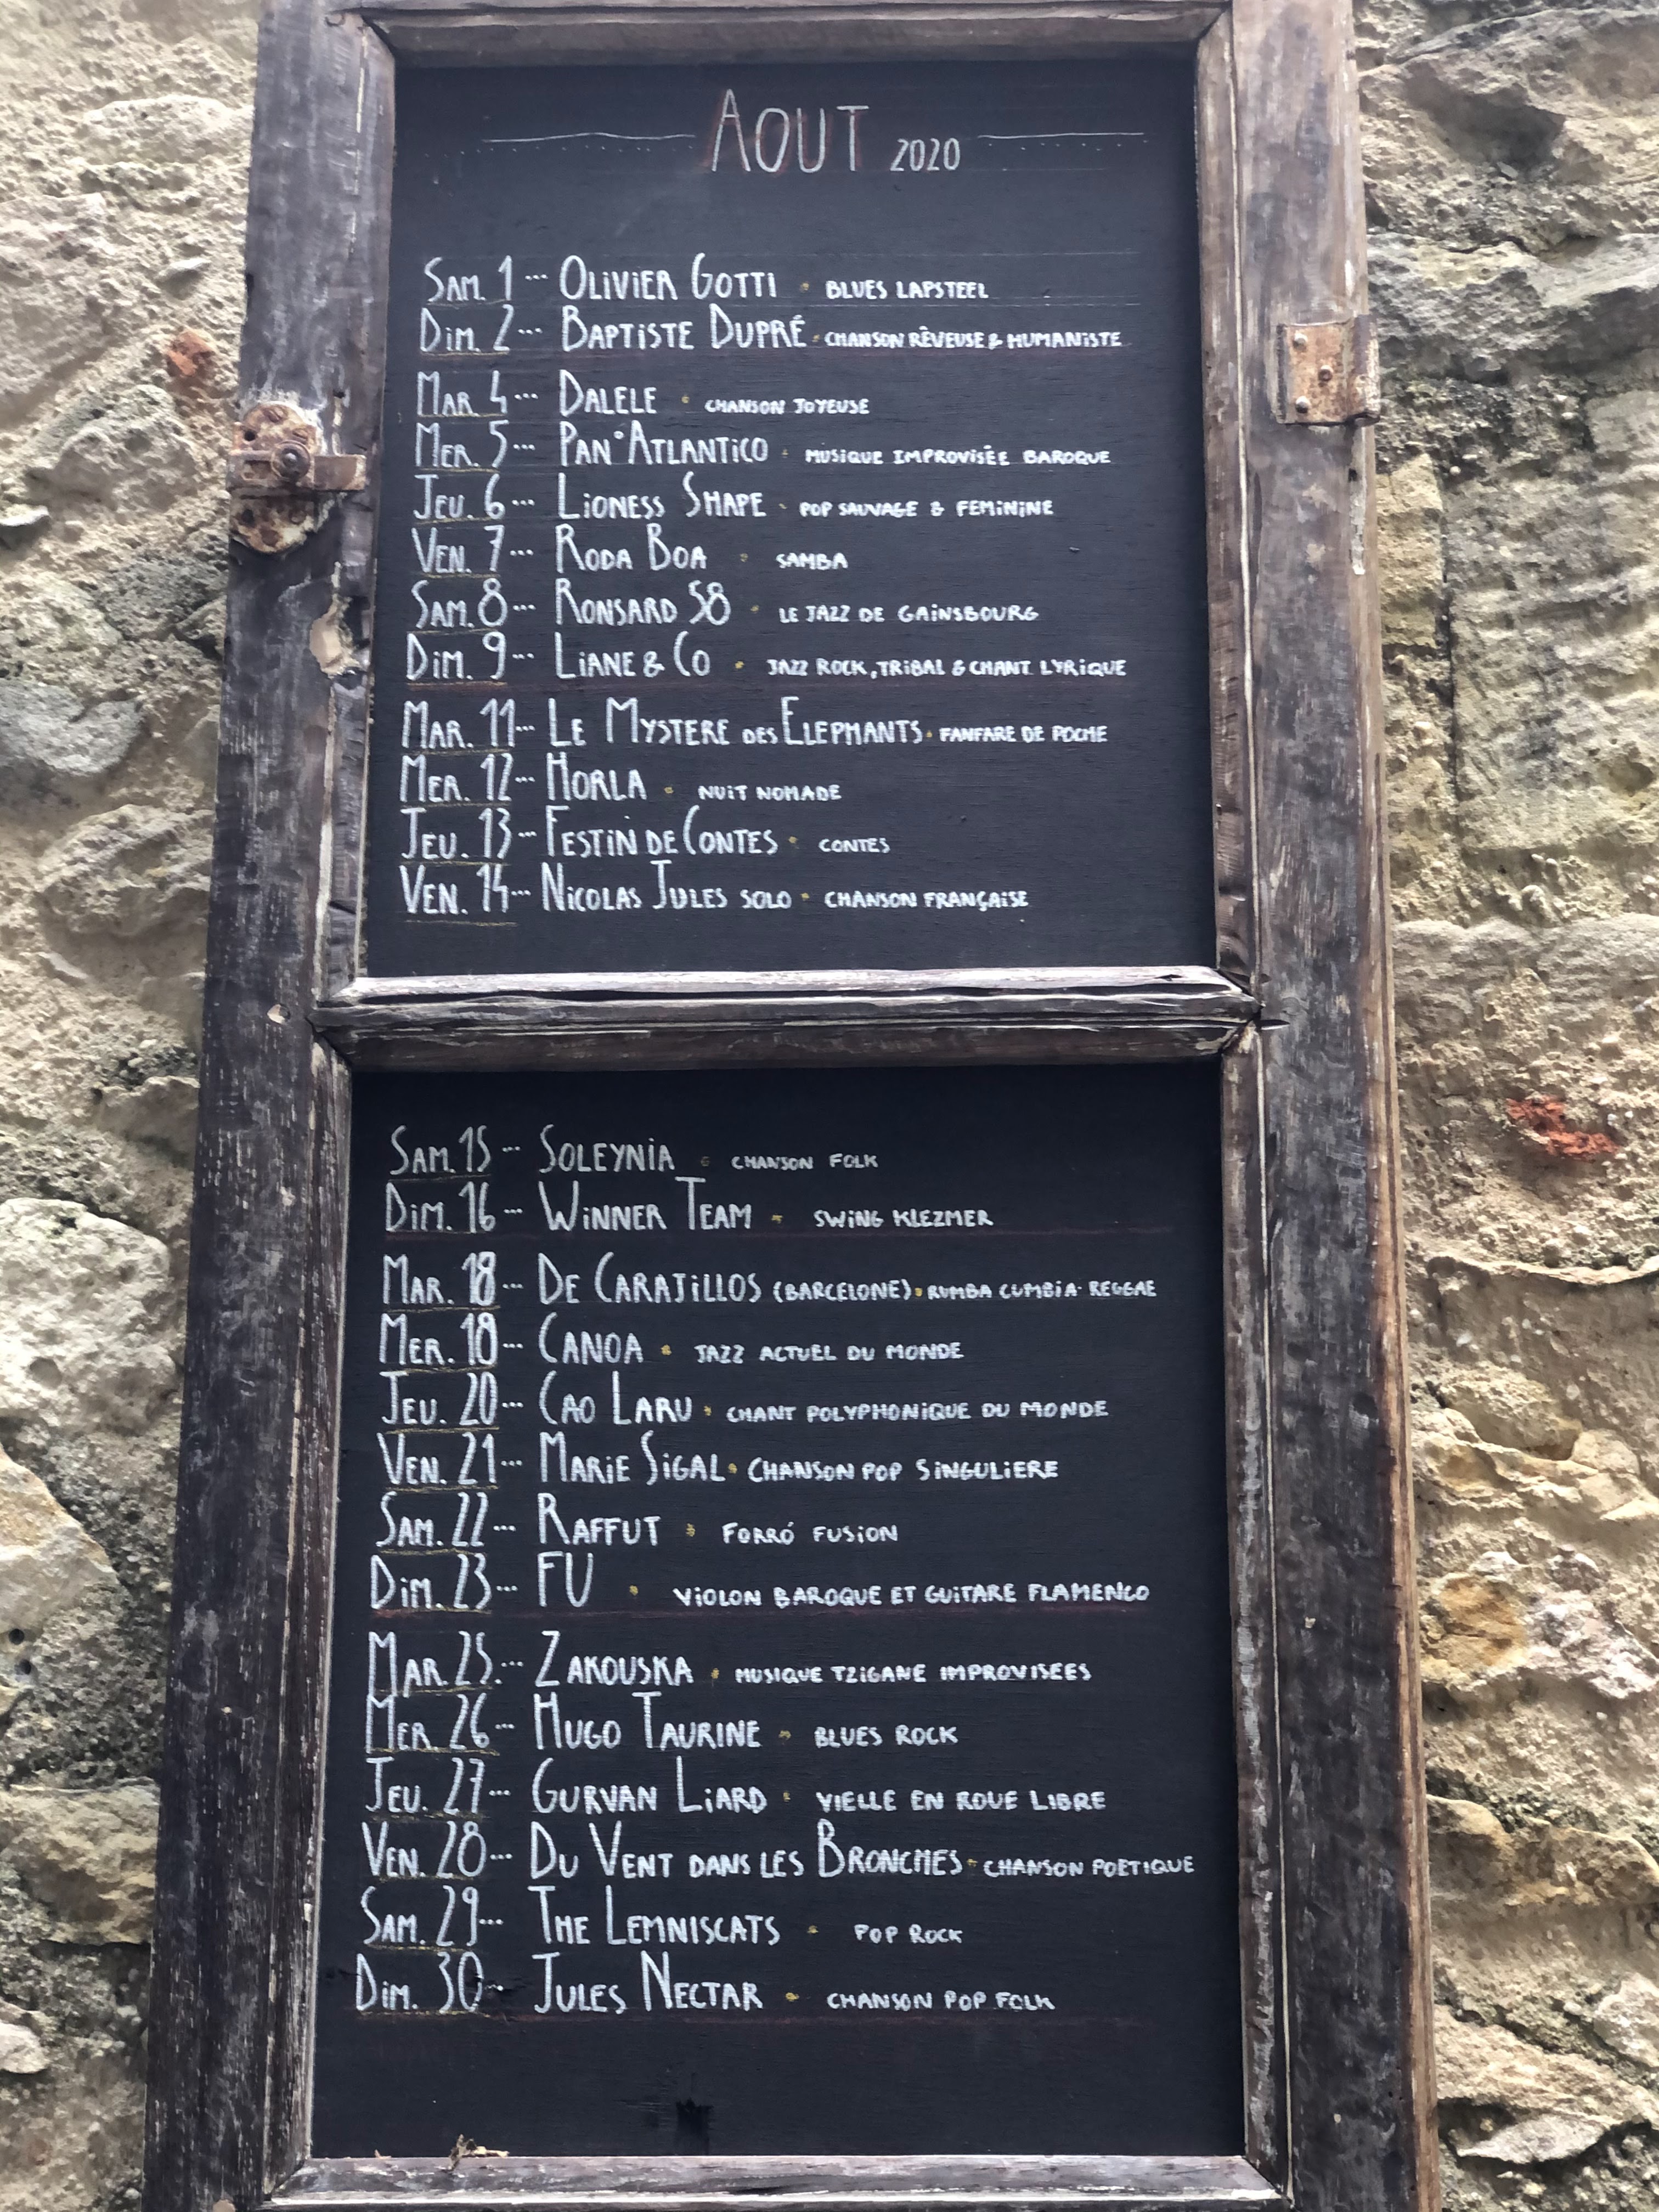 AOUT 2020
SAM. 1 ... OLIVIER GOTTI • BLUES LAPSTEEL
DIM. 2 ... BAPTISTE DUPRÉ • CHANSON RÊVEUSE & HUMANISTE
MAR. 4 ... DALELE • CHANSON JOYEUSE
MER. 5 ... PAN°ATLANTICO • MUSIQUE IMPROVISÉE BAROQUE
JEU. 6 ... LIONESS SHAPE • POP SAUVAGE & FEMININE
VEN. 7 ... RODA BOA • SAMBA
SAM. 8 ... RONSARD 58 • LE JAZZ DE GAINSBOURG
DIM. 9 ... LIANE & CO • JAZZ ROCK, TRIBAL & CHANT LYRIQUE
MAR. 11 ... LE MYSTERE DES ELEPHANTS • FANFARE DE POCHE
MER. 12 ... HORLA • NUIT NOMADE
JEU. 13 ... FESTIN DE CONTES • CONTES
VEN. 14 ... NICOLAS JULES SOLO • CHANSON FRANÇAISE
SAM. 15 ... SOLEYNIA • CHANSON FOLK
DIM. 16 ... WINNER TEAM • SWING KLEZMER
MAR. 18 ... DE CARAJILLOS (BARCELONE) • RUMBA CUMBIA • REGGAE
MER. 18 ... CANOA • JAZZ ACTUEL DU MONDE
JEU. 20 ... CAO LARU • CHANT POLYPHONIQUE DU MONDE
VEN. 21 ... MARIE SIGAL • CHANSON POP SINGULIERE
SAM. 22 ... RAFFUT • FORRÓ FUSION
DIM. 23 ... FU • VIOLON BAROQUE ET GUITARE FLAMENCO
MAR. 25 ... ZAKOUSKA • MUSIQUE TZIGANE IMPROVISEES
MER. 26 ... HUGO TAURINE • BLUES ROCK
JEU. 27 ... GURVAN LIARD • VIELLE EN ROUE LIBRE
VEN. 28 ... DU VENT DANS LES BRONCHES • CHANSON POETIQUE
SAM. 29 ... THE LEMNISCATS • POP ROCK
DIM. 30 ... JULES NECTAR • CHANSON POP FOLK